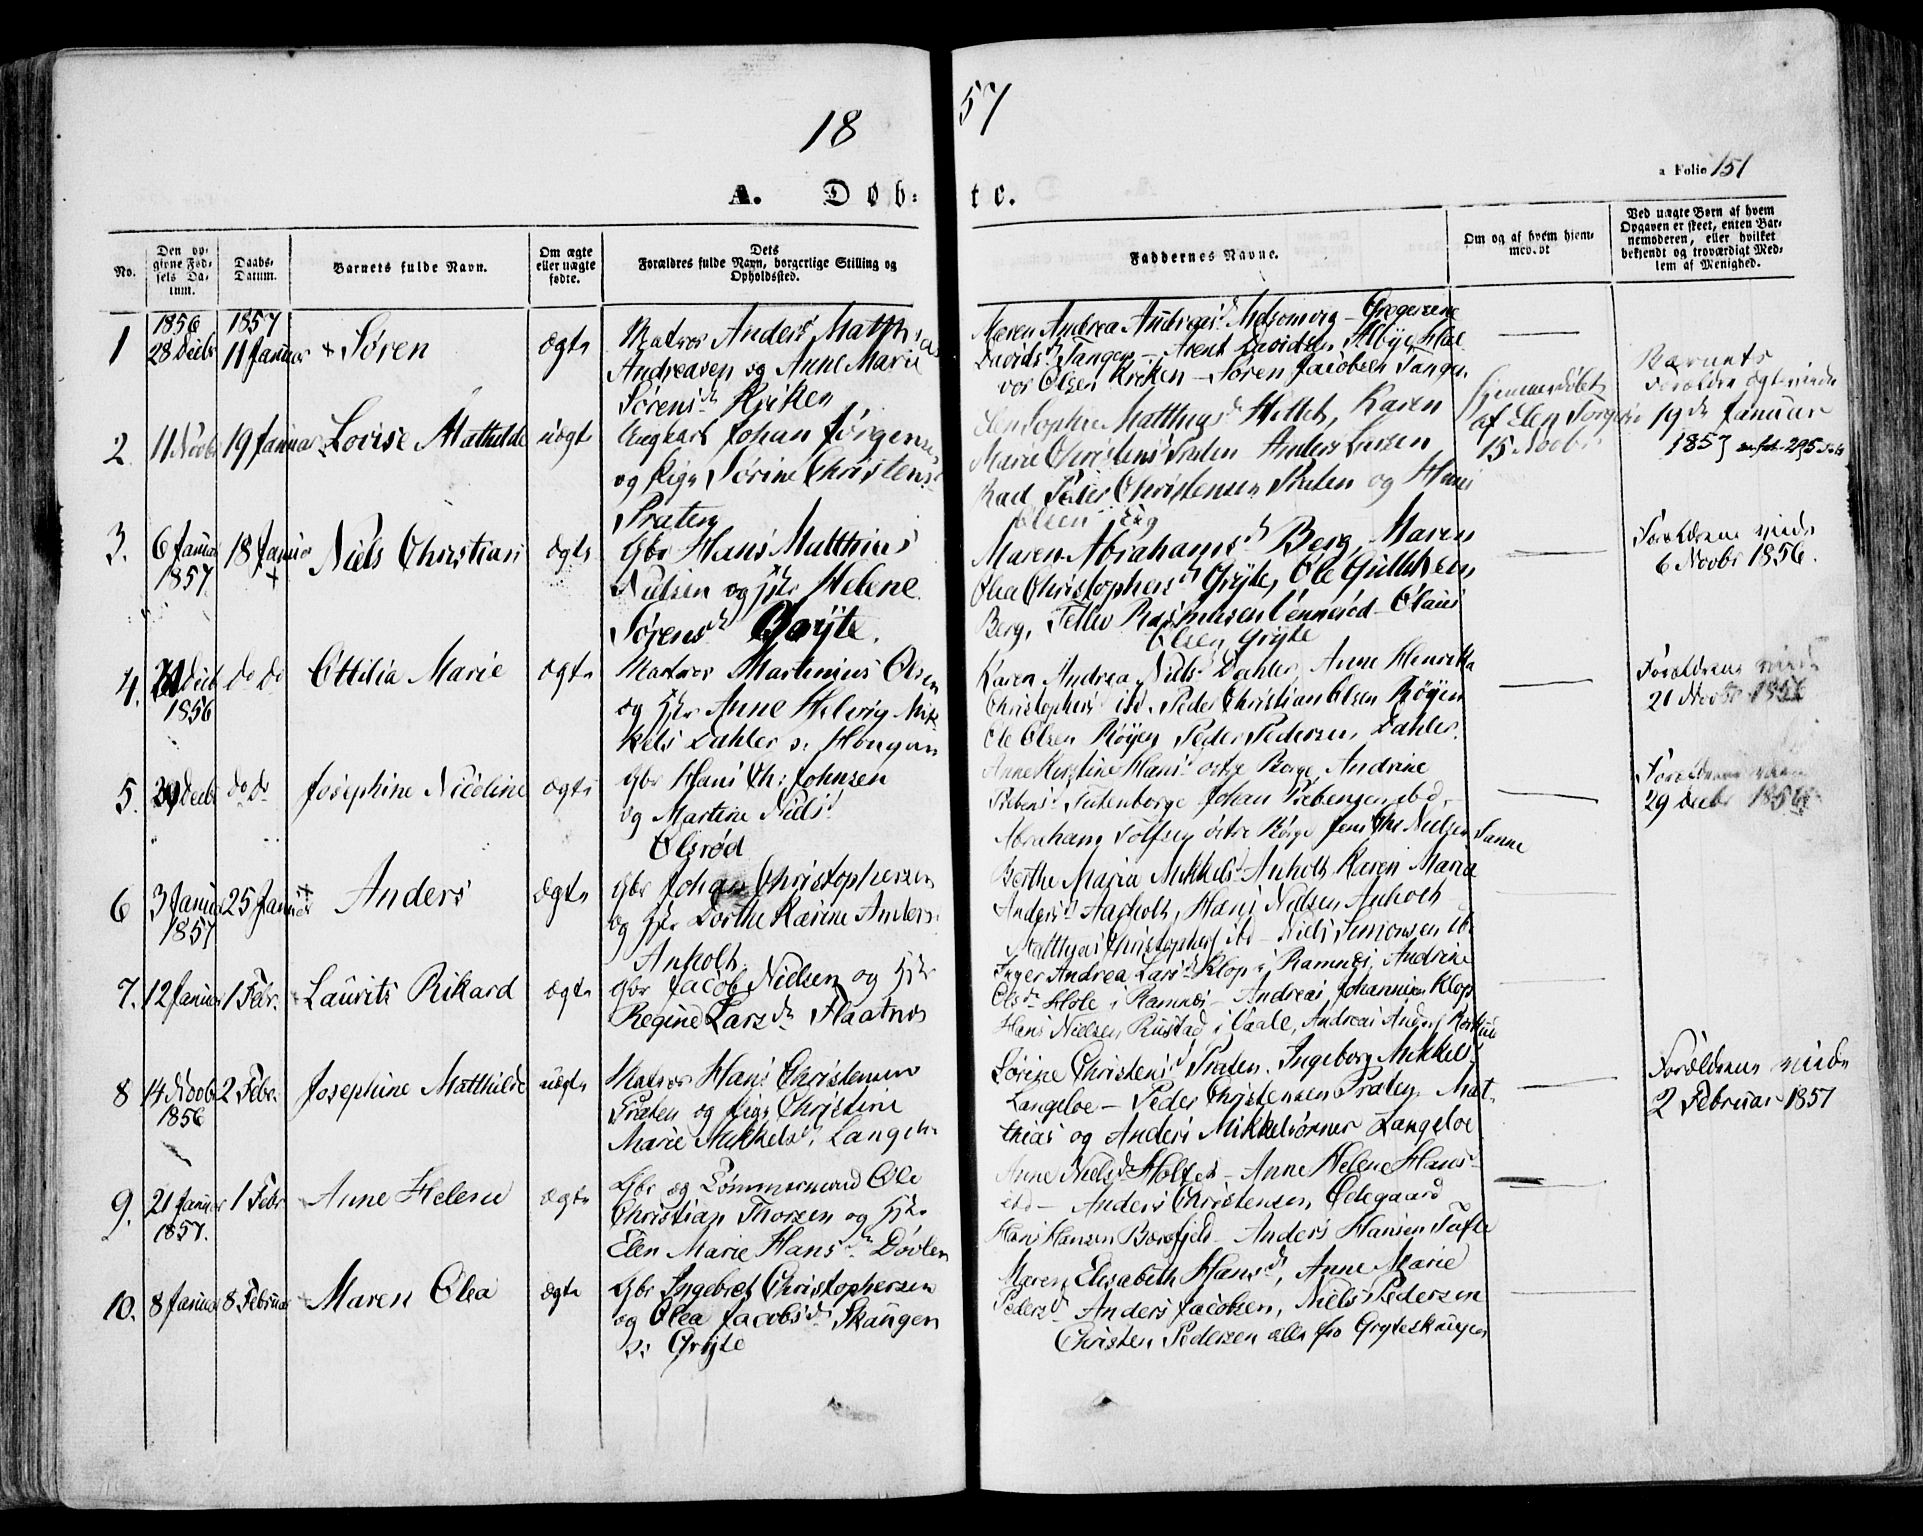 18 57
a Folio 151
A. Døb: te.
No.
Den op-
givne Fød-
sels Da-
tum.
Daabs-
Datum.
Barnets fulde Navn.
Om ægte
eller uægte
fødte.
Dets
Forældres fulde Navn, borgerlige Stilling og
Opholdssted.
Faddernes Navne.
Om og af hvem hjem-
medøbt
Ved uægte Børn af hvem
Opgaven er skeet, enten Bar-
nemoderen, eller hvilket
bekjendt og troværdigt Med-
lem af Menighed.
1
1856
28 Decbr
1857
11 Januar
Søren
ægte
Matros Anders Matthias
Andreasen og Anne Marie
Sørensd. Kriken
Maren Andrea Andreasd.
Davidsd. Tangen – Arent Davidsen
vor Olsen Kriken – Søren Jacobsen Tangen
2
11 Novbr
19 Januar
Lovise Mathilde
uægte
Ungkarl Johan Jørgensen
og Pige Sørine Christensd.
Præten
Elen Sophie Matthiasd. Karen
Marie Christensd. Præten Anders Larsen
Rød Peder Christensen Præten og Hans
Olsen
Hjemmedøbt
af Elen
15 Novbr
Barnets
Forældre ægteviede
19de Januar
1857
3.
6 Januar
1857
18 Januar
Niels Christian
ægte
Gbr Hans Matthias
Nielsen og Hstr Helene
Sørensd. Gryte.
Maren Abrahamsd. Berg, Maren
Olea Christophersd. Gryte, Ole Gulliksen
Berg, Rasmussen – Olaus
Olsen Gryte
Forældrene viede
6 Novbr 1856.
4.
Decb
1856
do do
Ottilia Marie
ægte
Matros Martinius Olsen
og Hstr Anne Helvig Mik
kels Dahler
Karen Andrea Niels Dahler, Anne Henrikka
Christophers ibd. Peder Christian Olsen Røyen
Ole Olsen Røyen Peder Pedersen Dahler.
Forældrene viede
21 Novbr 1856
5.
Decbr
do do
Josephine Nicoline
ægte
Gbr Hans Chr: Johnsen
og Martine Niels
Olsrød
Anne Kirstine Hans østre Borge, Andrine
Johan Prebensen ibd. –
Abraham østre Borge Jens Chr Nielsen Sanne
Forældrene viede
29 Decbr 1856
6
3 Januar
1857
25 Januar
Anders
ægte
Gbr Johan Christophersen
og Hstr Dorthe Karine Anders.
Anholt.
Berthe Maria Mikkels Anholt Karen Maria
Andersd. Aagholt, Hans Nielsen Anholt
Matthias Christophers ibd – Niels Simonsen ib.
7.
12 Januar
1 Febr.
Laurits Rikard
ægte
Gbr Jacob Nielsen og Hstr
Regine Larsd. Flaatnes
Inger Andrea Larsd. Klop i Ramnes, Andrine
Olsd. Hole i Ramnes – Andreas Johannesen Klop
Hans Nielsen Rustad i Vaale, Andreas Anders
8
14 Novbr
1856
2 Febr.
Josephine Matthilde
uægte
Matros Hans Christensen
Præten og Pige Christine
Marie Mikkelsd. Langeloe
Sørine Christensd. Præten. Ingeborg Mikkels
Langeloe – Peder Christensen Præten. Mat-
thias og Anders Mikkelsønner Langeloe
Forældrene viede
2 Februar 1857
9.
21 Januar
1857.
1 Febr
Anne Helene
ægte
Gbr og Tømmermand Ole
Christian Thorsen og Hstr
Elen Marie Hansd. Døvlen
Anne Nielsd. Holtet – Anne Helene Hans-
ibd – Anders Christensen Ødegaard
Hans Hansen – Anders Hansen Tofte
10.
8 Januar
8 Februar
Maren Olea
ægte
Gbr Ingebret Christophersen
og Olea Jacobsd. Skaugen
Gryte
Maren Elisabeth Hansd., Anne Marie
Pedersd. Anders Jacobsen, Niels Pedersen
Christen Pedersen alle fra Gryteskaugen